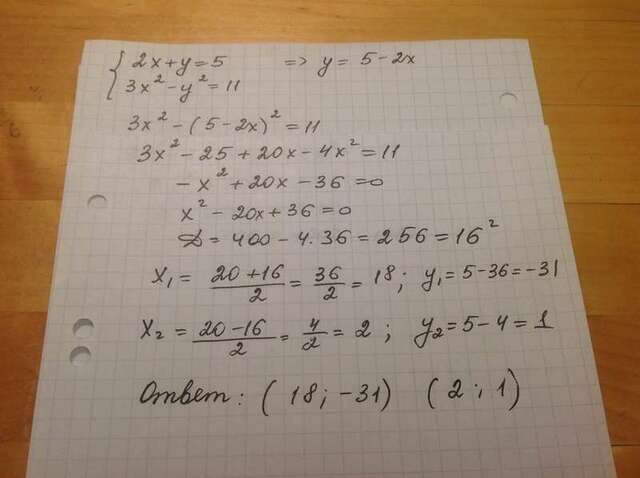 { 2x+y=5 => y = 5-2x
3x²-y²=11
3x²-(5-2x)²=11
3x²-25+20x-4x²=11
-x²+20x-36=0
x²-20x+36=0
D=400-4·36=256=16²
x₁= (20+16)/2 = 36/2 = 18; y₁=5-36=-31
x₂= (20-16)/2 = 4/2 = 2; y₂=5-4=1
Ответ: (18; -31) (2; 1)